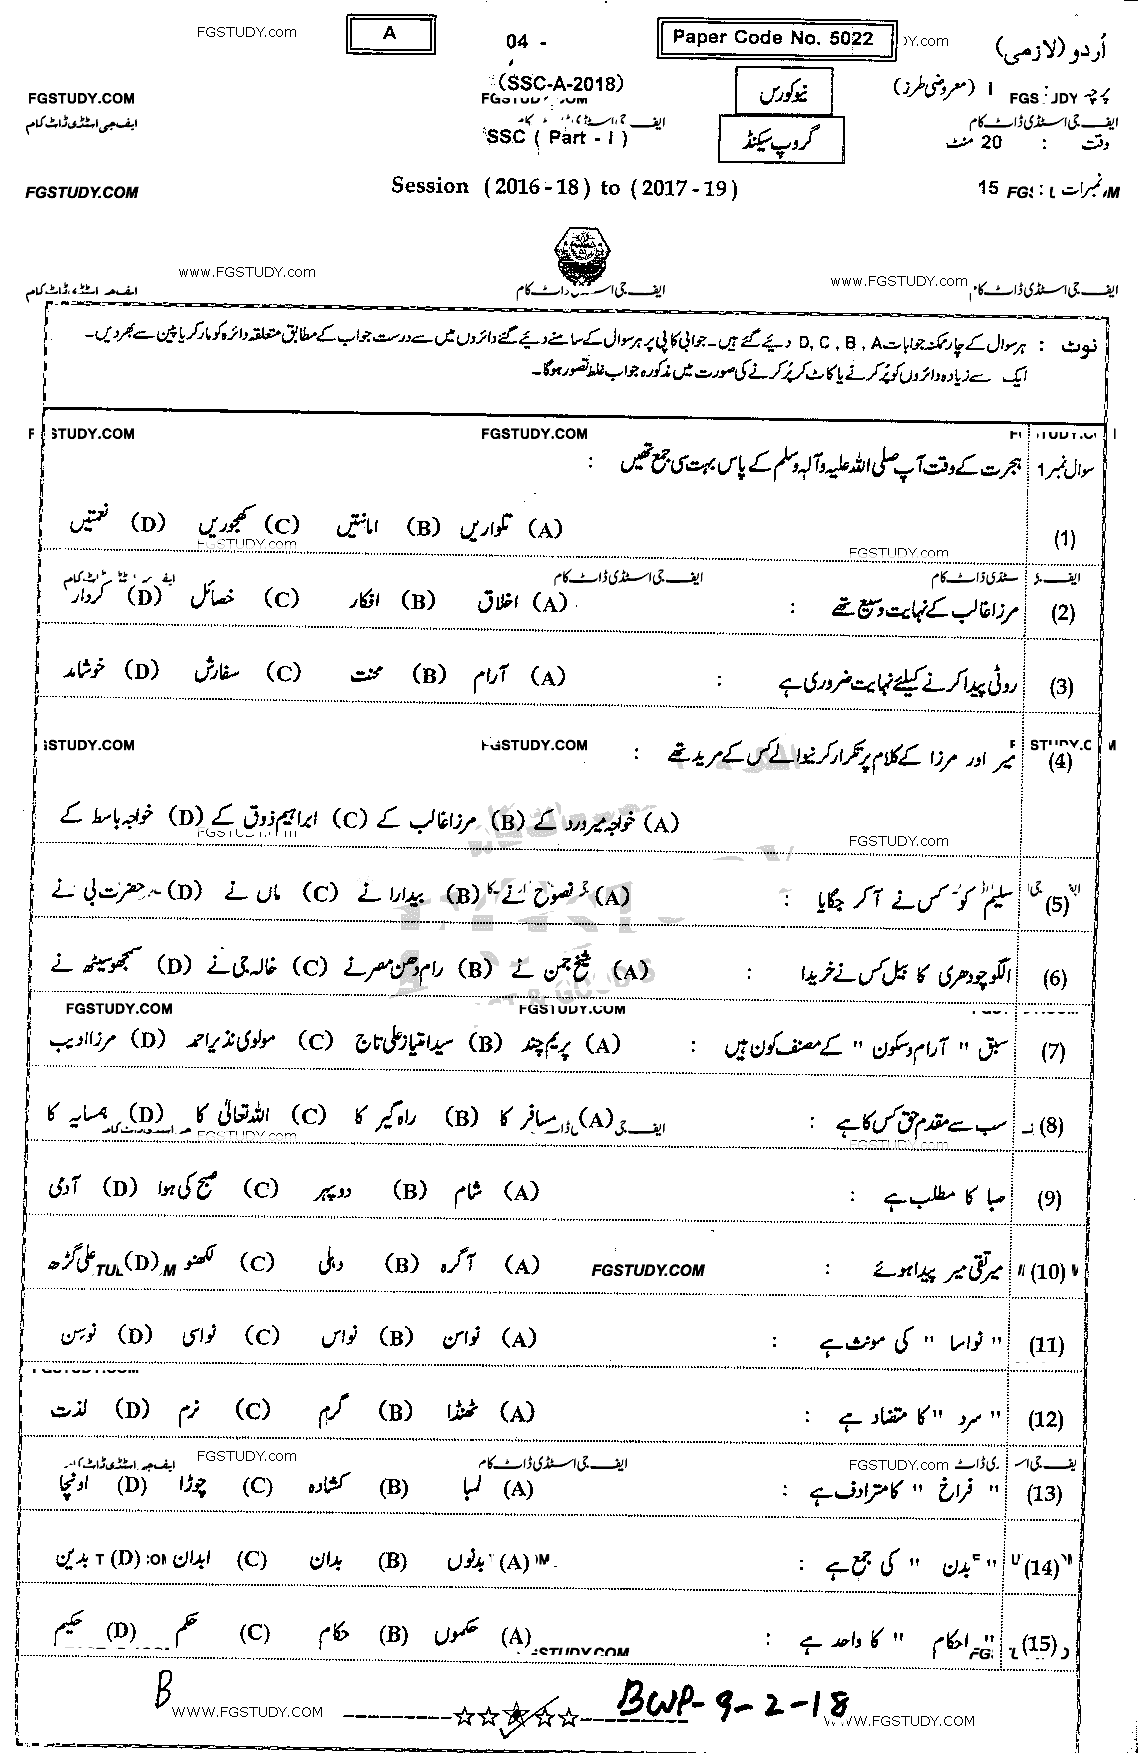 FGSTUDY.com A 04 - Paper Code No. 5022 .com اُردو (لازمی)
(SSC-A-2018) نیوکورس پرچہ I (معروضی طرز)
FGSTUDY.COM
ایف جی اسٹڈی ڈاٹ کام ایف جی اسٹڈی ڈاٹ کام
SSC ( Part - I ) گروپ سیکنڈ وقت : 20 منٹ
FGSTUDY.COM Session (2016-18) to (2017-19) نمبرات : 15
www.FGSTUDY.com www.FGSTUDY.com
ایف جی اسٹڈی ڈاٹ کام
نوٹ : ہر سوال کے چار ممکنہ جوابات D, C, B, A دیے گئے ہیں۔ جوابی کاپی پر ہر سوال کے سامنے دیے گئے دائروں میں سے درست جواب کے مطابق متعلقہ دائرہ کو مارکر یا پین سے بھر دیں۔
ایک سے زیادہ دائروں کو پُر کرنے یا کاٹ کر پُر کرنے کی صورت میں مذکورہ جواب غلط تصور ہوگا۔
STUDY.COM FGSTUDY.COM
سوال نمبر 1 ہجرت کے وقت آپ صلی اللہ علیہ وآلہ وسلم کے پاس بہت سی جمع تھیں :
(1) (A) تلواریں (B) امانتیں (C) کھجوریں (D) نعمتیں
FGSTUDY.com
ایف جی اسٹڈی ڈاٹ کام
(2) مرزا غالب کے نہایت وسیع تھے : (A) اخلاق (B) افکار (C) خصائل (D) کردار
(3) روٹی پیدا کرنے کیلئے نہایت ضروری ہے : (A) آرام (B) محنت (C) سفارش (D) خوشامد
STUDY.COM FGSTUDY.COM
(4) میر اور مرزا کے کلام پر تکرار کرنیوالے کس کے مرید تھے :
(A) خواجہ میر درد کے (B) مرزا غالب کے (C) ابراہیم ذوق کے (D) خواجہ باسط کے
FGSTUDY.com
(5) سلیم کو کس نے آ کر جگایا : (A) نصوح نے (B) بیدارا نے (C) ماں نے (D) حضرت بی نے
(6) الگو چودھری کا بیل کس نے خریدا : (A) شیخ جمن نے (B) رام دھن مصر نے (C) خالہ جی نے (D) سمجھو سیٹھ نے
FGSTUDY.COM FGSTUDY.COM
(7) سبق " آرام و سکون " کے مصنف کون ہیں : (A) پریم چند (B) سید امتیاز علی تاج (C) مولوی نذیر احمد (D) مرزا ادیب
(8) سب سے مقدم حق کس کا ہے : (A) مسافر کا (B) راہ گیر کا (C) اللہ تعالیٰ کا (D) ہمسایہ کا
FGSTUDY.com
(9) صبا کا مطلب ہے : (A) شام (B) دوپہر (C) صبح کی ہوا (D) آدمی
(10) میر تقی میر پیدا ہوئے : FGSTUDY.COM (A) آگرہ (B) دہلی (C) لکھنو (D) علی گڑھ
(11) " نواسا " کی مونث ہے : (A) نواسن (B) نواس (C) نواسی (D) نوسن
(12) " سرد " کا متضاد ہے : (A) ٹھنڈا (B) گرم (C) نرم (D) لذت
FGSTUDY.com ایف جی اسٹڈی ڈاٹ کام FGSTUDY.com
(13) " فراخ " کا مترادف ہے : (A) لمبا (B) کشادہ (C) چوڑا (D) اونچا
(14) " بدن " کی جمع ہے : (A) بدنوں (B) بدان (C) ابدان (D) بدین
(15) " احکام " کا واحد ہے : (A) حکموں (B) حکام (C) حکم (D) حکیم
B BWP-9-2-18
WWW.FGSTUDY.COM WWW.FGSTUDY.COM